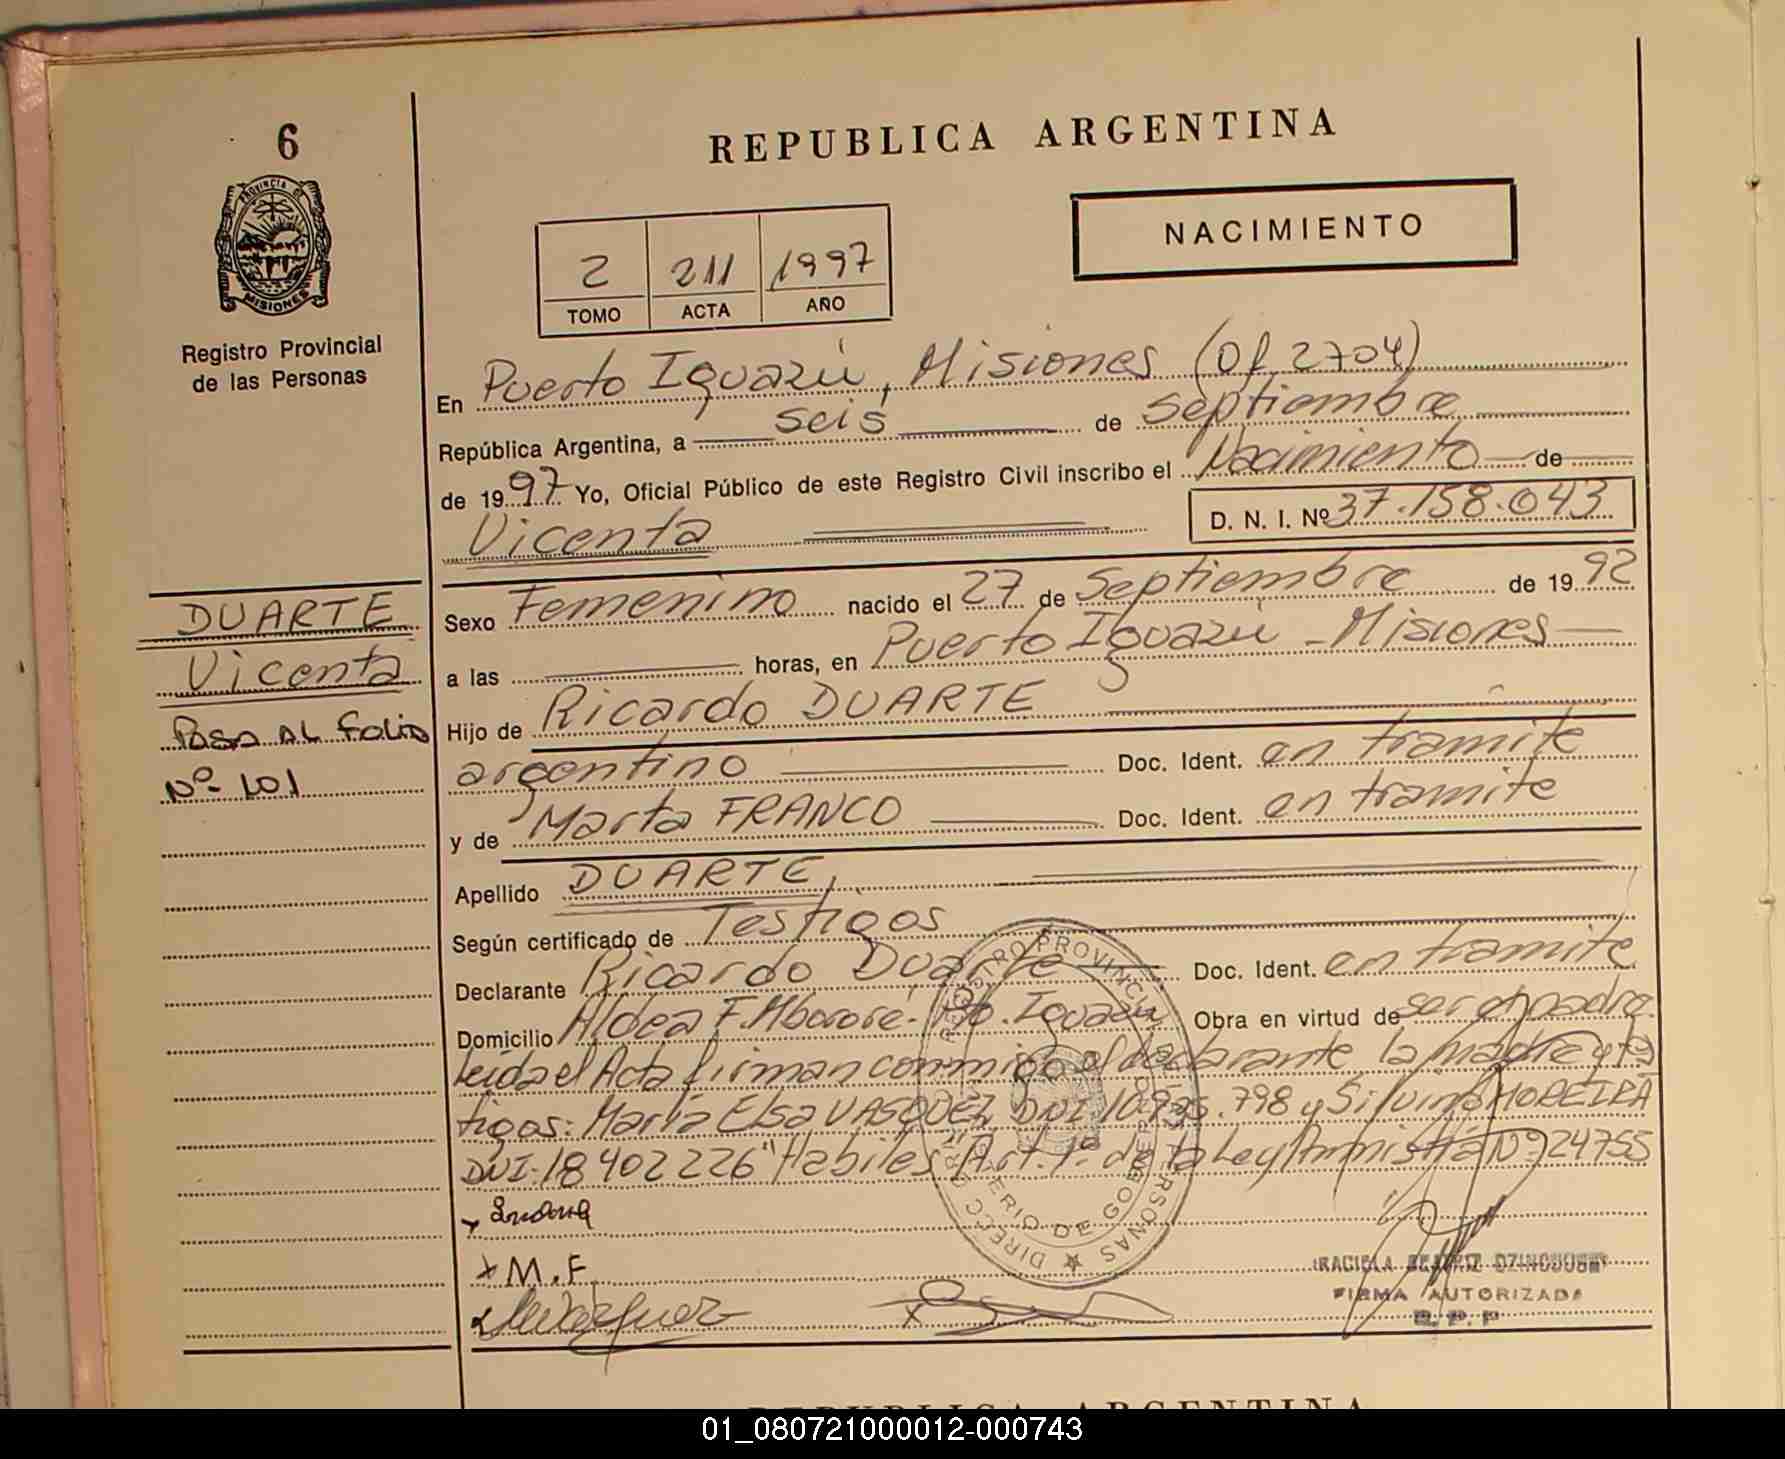 6
PROVINCIA DE
MISIONES
Registro Provincial
de las Personas
REPUBLICA ARGENTINA
NACIMIENTO
2 211 1997
TOMO ACTA AÑO
En Puerto Iguazú, Misiones (Of. 2704)
República Argentina, a seis de Septiembre
de 1997 Yo, Oficial Público de este Registro Civil inscribo el Nacimiento de
Vicenta D. N. I. Nº 37.158.043
DUARTE
Vicenta
Pasa al folio
Nº 101
Sexo Femenino nacido el 27 de Septiembre de 1992
a las horas, en Puerto Iguazú - Misiones
Hijo de Ricardo DUARTE
argentino Doc. Ident. en tramite
y de Marta FRANCO Doc. Ident. en tramite
Apellido DUARTE,
Según certificado de Testigos
Declarante Ricardo Duarte Doc. Ident. en tramite
Domicilio Aldea F. Mbororé - Pto. Iguazú Obra en virtud de ser el padre.
Leída el Acta firman conmigo el declarante, la madre y tes
tigos: María Elsa VASQUEZ, DNI. 10.935.798 y Silvino MOREIRA
DNI. 18402226 "Habiles" Art. 1º de la Ley Amnistía Nº 24755
REGISTRO PROVINCIAL DE LAS PERSONAS
MINISTERIO DE GOBIERNO
x M. F.
BEATRIZ
FIRMA AUTORIZADA
R. P. P
REPUBLICA ARGENTINA
01_080721000012-000743